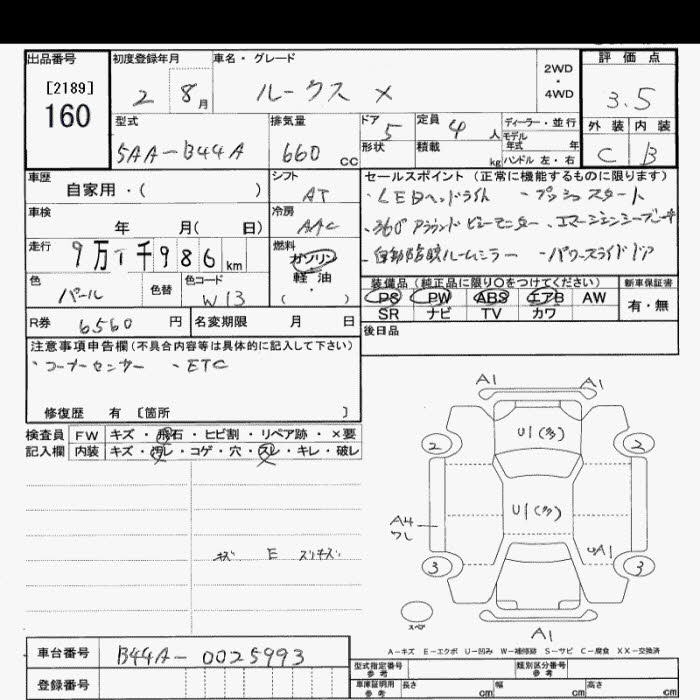 出品番号 [2189] 160
初度登録年月 2 8月
車名・グレード ルークス X
2WD・4WD
評価点 3.5
外装 内装
C B
型式 5AA-B44A
排気量 660 cc
ドア 5 定員 4人
形状 積載 kg
ディーラー・並行
モデル年式 年
ハンドル 左・右
車歴 自家用・( )
シフト AT
セールスポイント (正常に機能するものに限ります)
・LEDヘッドライト ・プッシュスタート
・360°アラウンドビューモニター ・エマージェンシーブレーキ
・自動防眩ルームミラー ・パワースライドドア
車検 年 月( 日)
冷房 AAC
走行 9万 千986km
燃料 ガソリン 軽・油 ( )
色 パール 色替 色コード W13
装備品 (純正品に限り〇をつけてください)
新車保証書
PS PW ABS エアB AW
有・無
SR ナビ TV カワ
R券 6560円 名変期限 月 日
後日品
注意事項申告欄(不具合内容等は具体的に記入して下さい)
・コーナーセンサー ・ETC
修復歴 有 [箇所 ]
検査員 FW キズ・飛石・ヒビ割・リペア跡・×要
記入欄 内装 キズ・汚レ・コゲ・穴・スレ・キレ・破レ
A1 A1
U1(多)
2 2
U1(多)
A4
ワレ
UA1
3 3
キズ E スリキズ
スペア
A1
A-キズ E-エクボ U-凹み W-補修跡 S-サビ C-腐食 XX-交換済
車台番号 B44A-0025993
登録番号
型式指定番号 参考 類別区分番号 参考
車庫証明用 参考 長さ cm 幅 cm 高さ cm